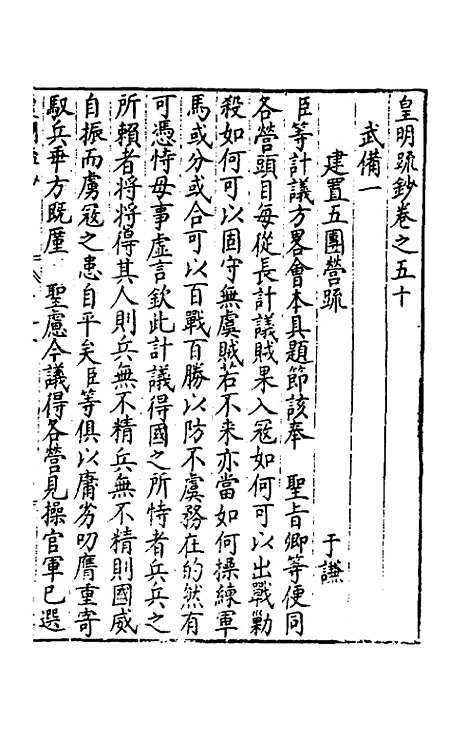 皇明疏鈔卷之五十
武備一
建置五團營疏 于謙
臣等計議方畧會本具題節該奉 聖旨卿等便同
各營頭目每從長計議賊果入寇如何可以出戰勦
殺如何可以固守無虞賊若不来亦當如何操練軍
馬或分或合可以百戰百勝以防不虞務在的然有
可憑恃毋事虛言欽此計議得國之所恃者兵兵之
所賴者將將得其人則兵無不精兵無不精則國威
自振而虜寇之患自平矣臣等俱以庸劣叨膺重寄
馭兵乖方既厪 聖慮今議得各營見操官軍已選